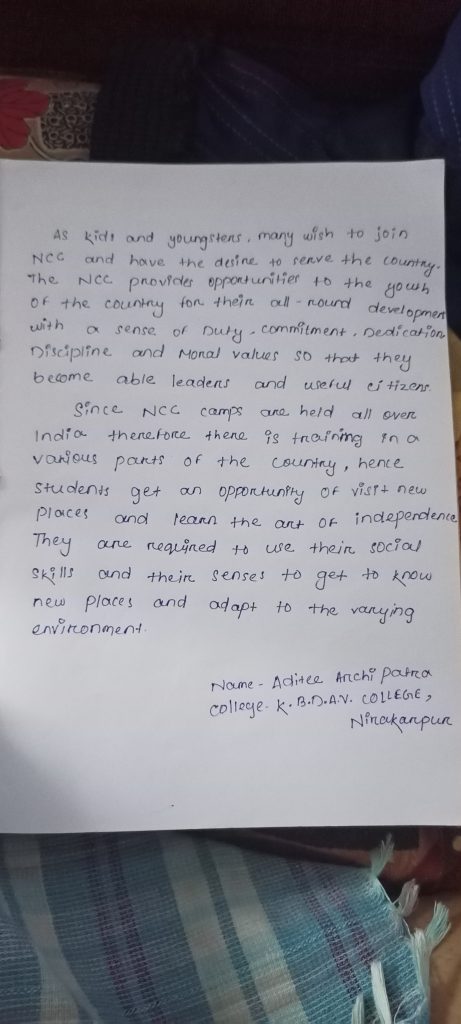 As kids and youngsters, many wish to join
NCC and have the desire to serve the country.
The NCC provides opportunities to the youth
of the country for their all-round developmen
with a sense of Duty, commitment, Dedication
Discipline and Moral values so that they
become able leaders and useful citizens.
Since NCC camps are held all over
India therefore there is training in a
various parts of the country, hence
students get an opportunity of visit new
places and learn the art of independence
They are required to use their social
skills and their senses to get to know
new places and adapt to the varying
environment.
Name - Aditee Archi Patra
College - K.B.D.A.V. COLLEGE,
Nirakarpur